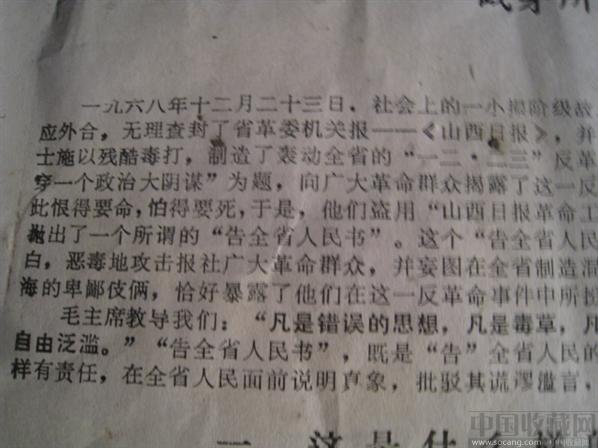 一九六八年十二月二十三日，社会上的一小撮阶级敌
应外合，无理查封了省革委机关报——《山西日报》，并
士施以残酷毒打，制造了轰动全省的“一二·二三”反革
穿一个政治大阴谋”为题，向广大革命群众揭露了这一反
此恨得要命，怕得要死，于是，他们盗用“山西日报革命工
抛出了一个所谓的“告全省人民书”。这个“告全省人民
白，恶毒地攻击报社广大革命群众，并妄图在全省制造混
海的卑鄙伎俩，恰好暴露了他们在这一反革命事件中所扮
毛主席教导我们：“凡是错误的思想，凡是毒草，凡
自由泛滥。”“告全省人民书”，既是“告”全省人民的
样有责任，在全省人民面前说明真象，批驳其谎谬滥言，
一 这是什
中国收藏网
www.socang.com